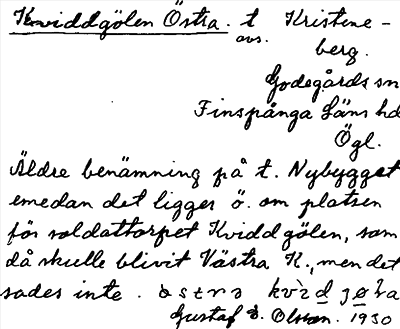 Kviddgölen Östra. t Kristine-
avs. berg.
Godegårds sn
Finspånga Läns hd
Ögl.
Äldre benämning på t. Nybygget
emedan det ligger ö. om platsen
för soldattorpet Kviddgölen, som
då skulle blivit Västra K., men det
sades inte.
Gustaf E. Olsson. 1930